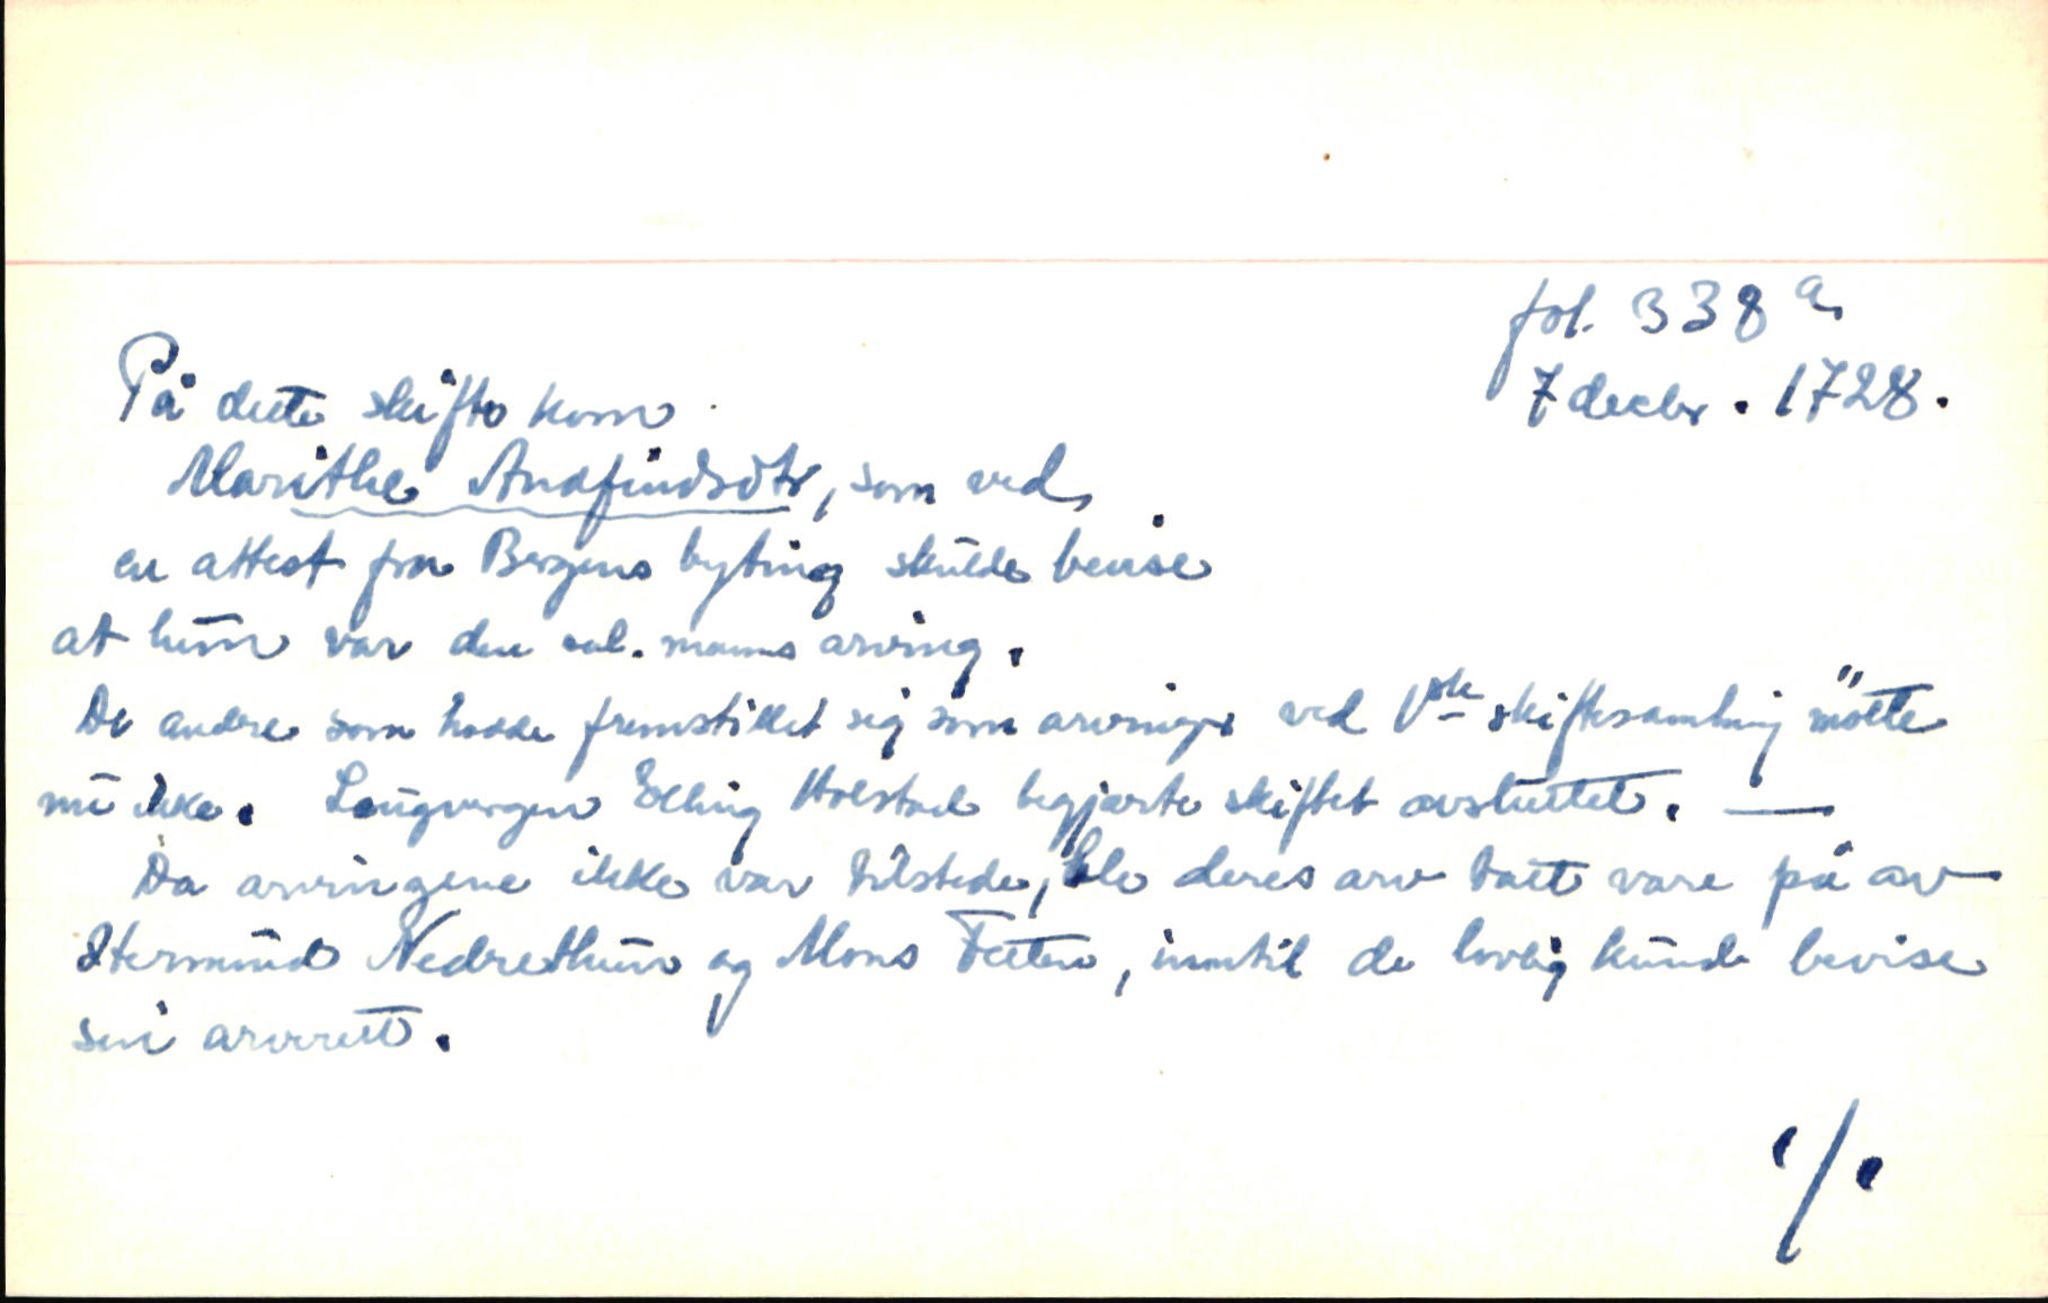 fol. 338 a
7 decbr. 1728.
På dette skifte kom
Marithe Andfindsdtr, som ved
en attest fra Bergens byting skulde bevise
at hun var den sal. manns arving.
De andre som hadde fremstillet sig som arvinger ved 1ste skiftesamling møtte
nu ikke. Laugvergen Elling Holstad begjærte skiftet avsluttet. —
Da arvingene ikke var tilstede, ble deres arv tatt vare på av
Stermund Nedrethun og Mons Feten, inntil de lovlig kunde bevise
sin arverett.